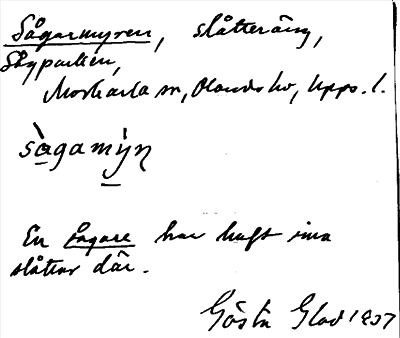 Sågarmyren, slåtteräng,
Sågparken,
Morkarla sn, Olands hd, Upps. l.
sàgamỳn
En sågare har haft sina
slåtter där.
Gösta Glad 1937